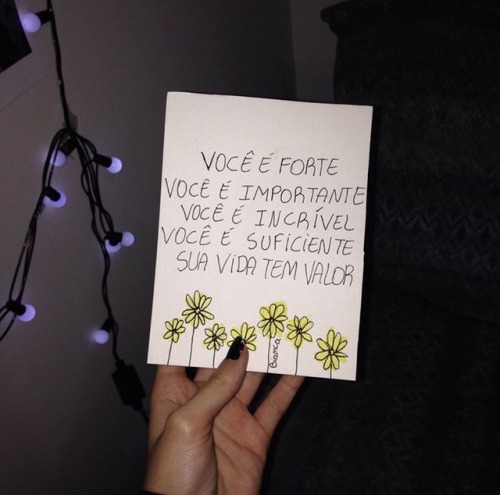 VOCÊ É FORTE
VOCÊ É IMPORTANTE
VOCÊ É INCRÍVEL
VOCÊ É SUFICIENTE
SUA VIDA TEM VALOR
Bianca